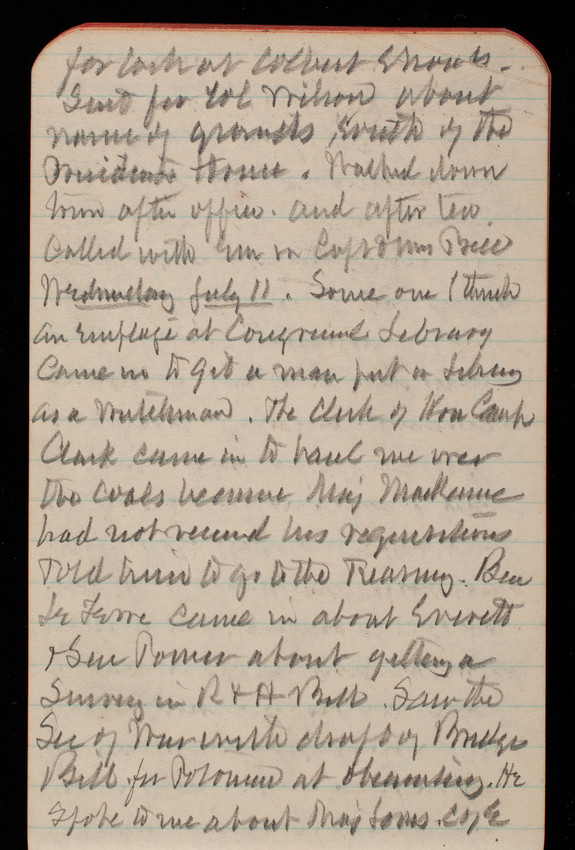 for lock at Colbert Shoals.
Sent for Col Wilson about
name of grounds South of the
Presidents House. Walked down
town after office. and after tea
called with Em on Capt & Mrs Bell
Wednesday July 11. Some one I think
an employe at Congressl Library
came in to get a man put in Library
as a Watchman. The Clerk of Hon Champ
Clark came in to haul me over
the coals because Maj Mackenzie
had not received his requisitions
Told him to go to the Treasury. Ben
Le Fevre came in about Everett
& Genl Power about getting a
Survey in R & H Bill. Saw the
Sec of War with draft of Bridge
Bill for Potomac at
Spoke to me about Maj Jones. C of E